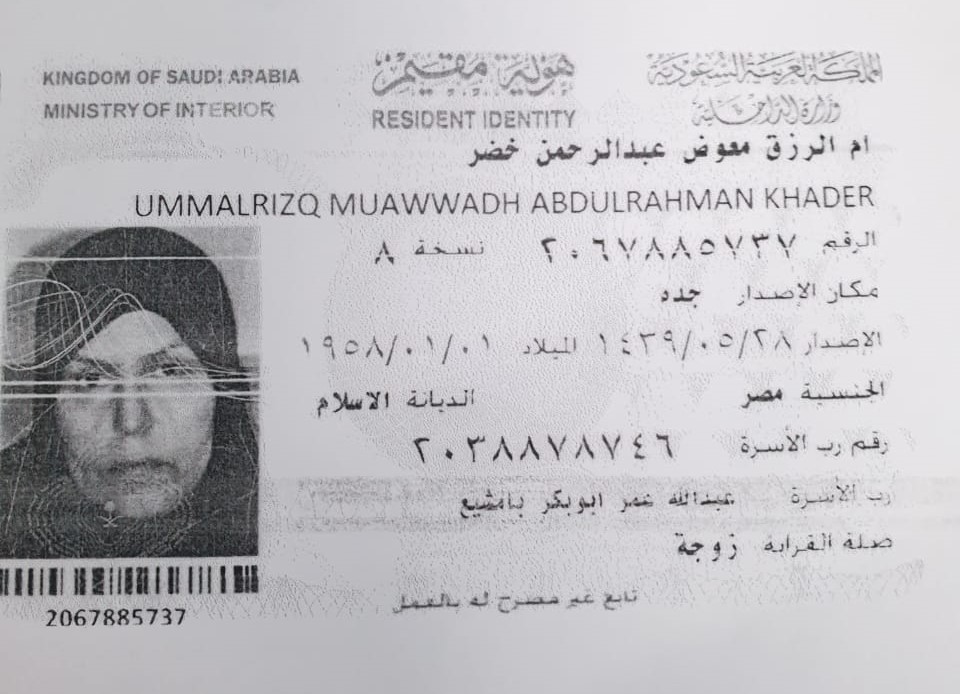 KINGDOM OF SAUDI ARABIA
MINISTRY OF INTERIOR
هوية مقيم
RESIDENT IDENTITY
المملكة العربية السعودية
وزارة الداخلية
ام الرزق معوض عبدالرحمن خضر
UMMALRIZQ MUAWWADH ABDULRAHMAN KHADER
الرقم ٢٠٦٧٨٨٥٧٣٧ نسخة ٨
مكان الإصدار جده
الاصدار ١٤٣٩/٠٥/٢٨ الميلاد ١٩٥٨/٠١/٠١
الجنسية مصر الديانة الاسلام
رقم رب الأسرة ٢٠٣٨٨٧٨٧٤٦
رب الأسرة عبدالله عمر ابوبكر بامشيع
صلة القرابة زوجة
تابع غير مصرح له بالعمل
2067885737